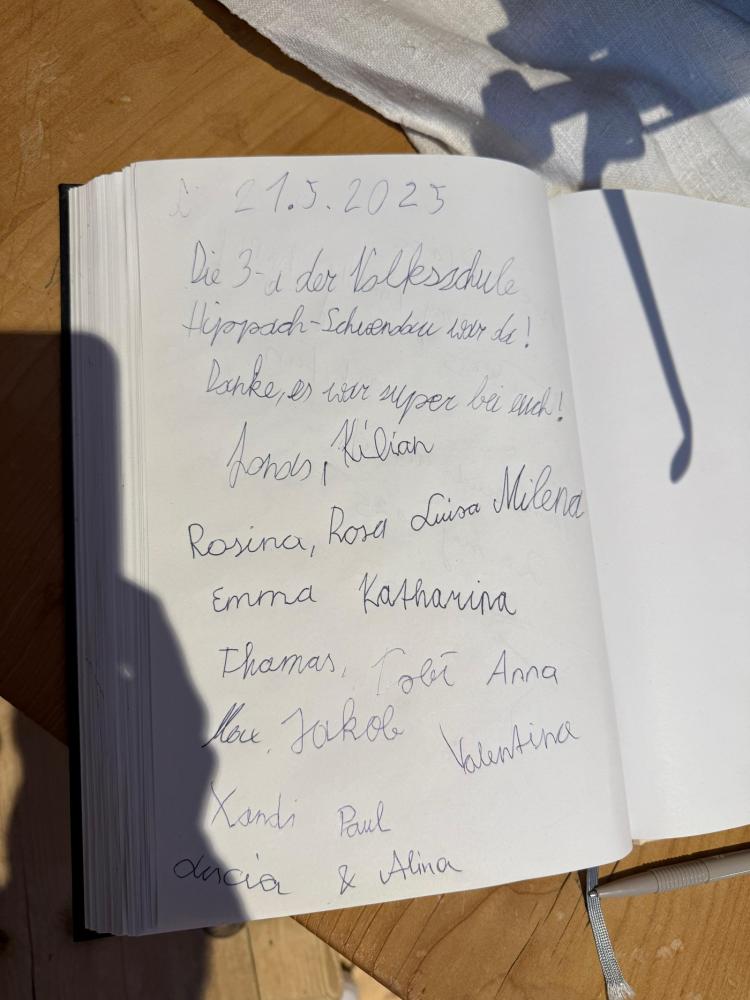 21.5.2025
Die 3-a der Volksschule
Hippach-Schwendau war da!
Danke, es war super bei euch!
Jonas, Kilian
Rosina, Rosa Luisa Milena
Emma Katharina
Thomas, Tobi Anna
Max, Jakob Valentina
Xandi Paul
Lucia & Alina